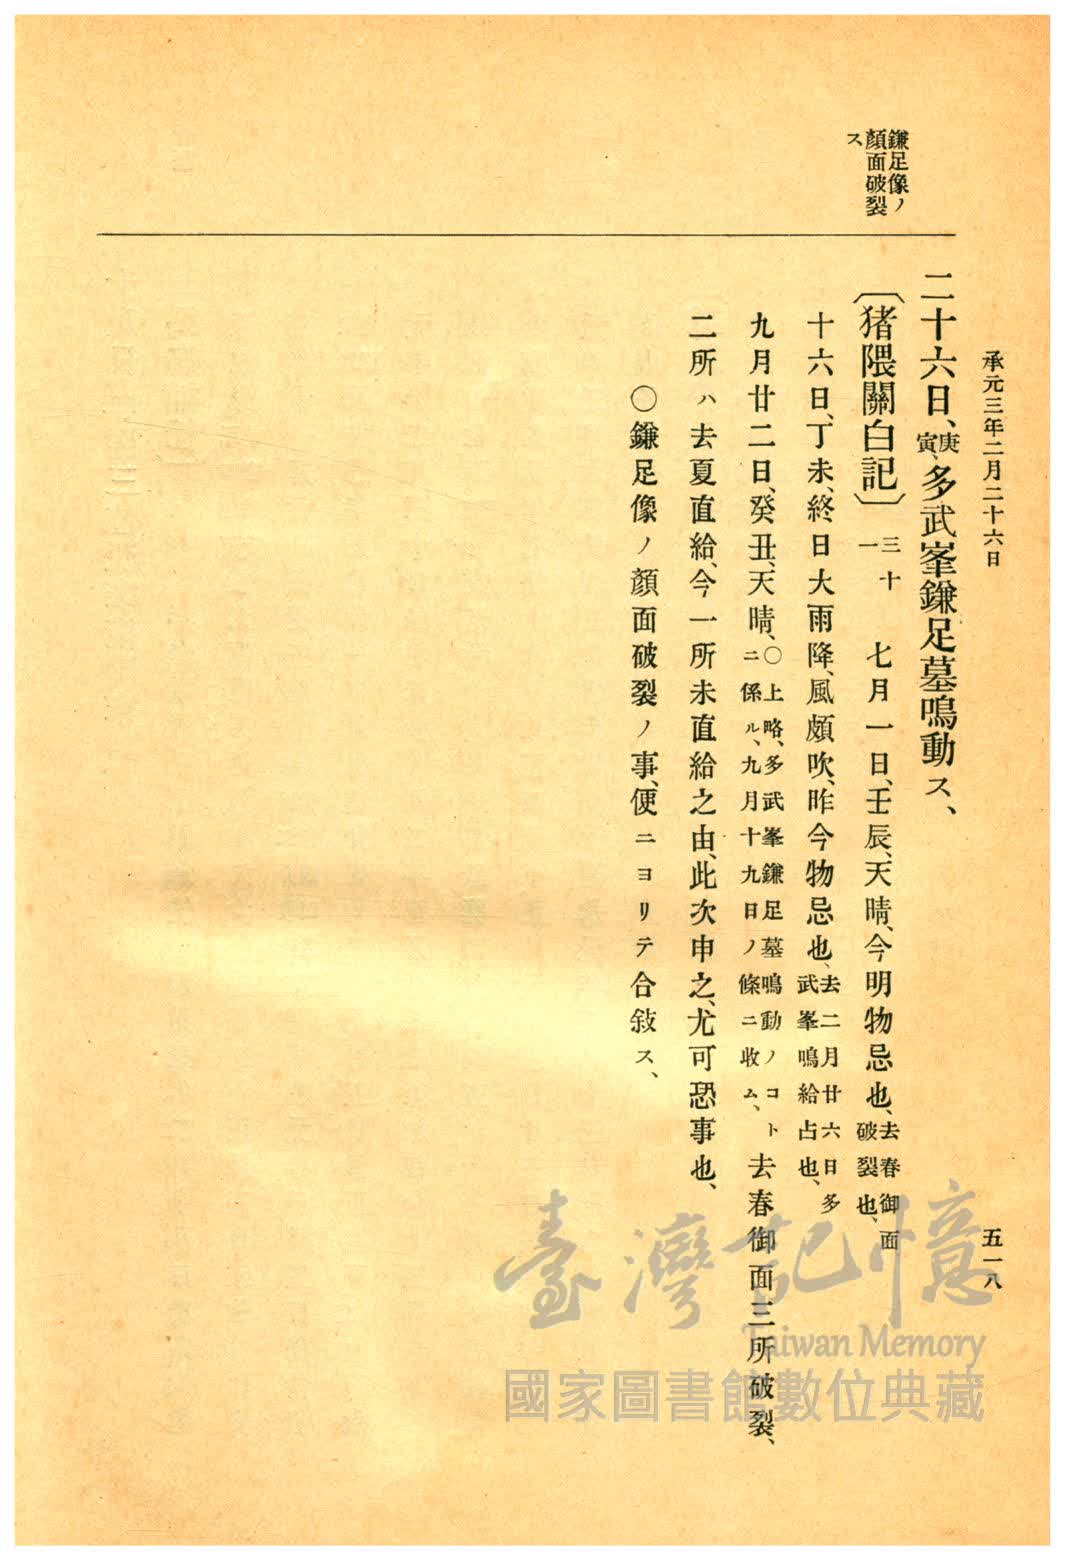 承元三年二月二十六日
五一八
鎌足像ノ
顏面破裂
ス
二十六日、庚寅、多武峯鎌足墓鳴動ス、
〔猪隈關白記〕三十一 七月一日、壬辰、天晴、今明物忌也、去春御面破裂也、
十六日、丁未、終日大雨降、風頗吹、昨今物忌也、去二月廿六日多武峯鳴給占也、
九月廿二日、癸丑、天晴、○上略、多武峯鎌足墓鳴動ノコトニ係ル、九月十九日ノ條ニ收ム、去春御面三所破裂、
二所ハ去夏直給、今一所未直給之由、此次申之、尤可恐事也、
○鎌足像ノ顏面破裂ノ事、便ニヨリテ合敍ス、
臺灣記憶
Taiwan Memory
國家圖書館數位典藏